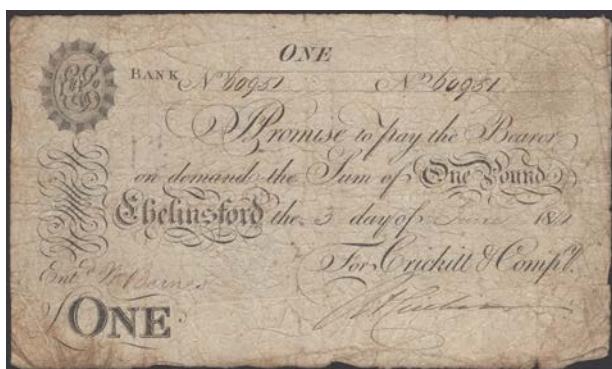 ONE
BANK No 60951 No 60951
I Promise to pay the Bearer
on demand the Sum of One Pound
Chelmsford the 3 day of June
For Crickitt & Compy.
Entd
ONE